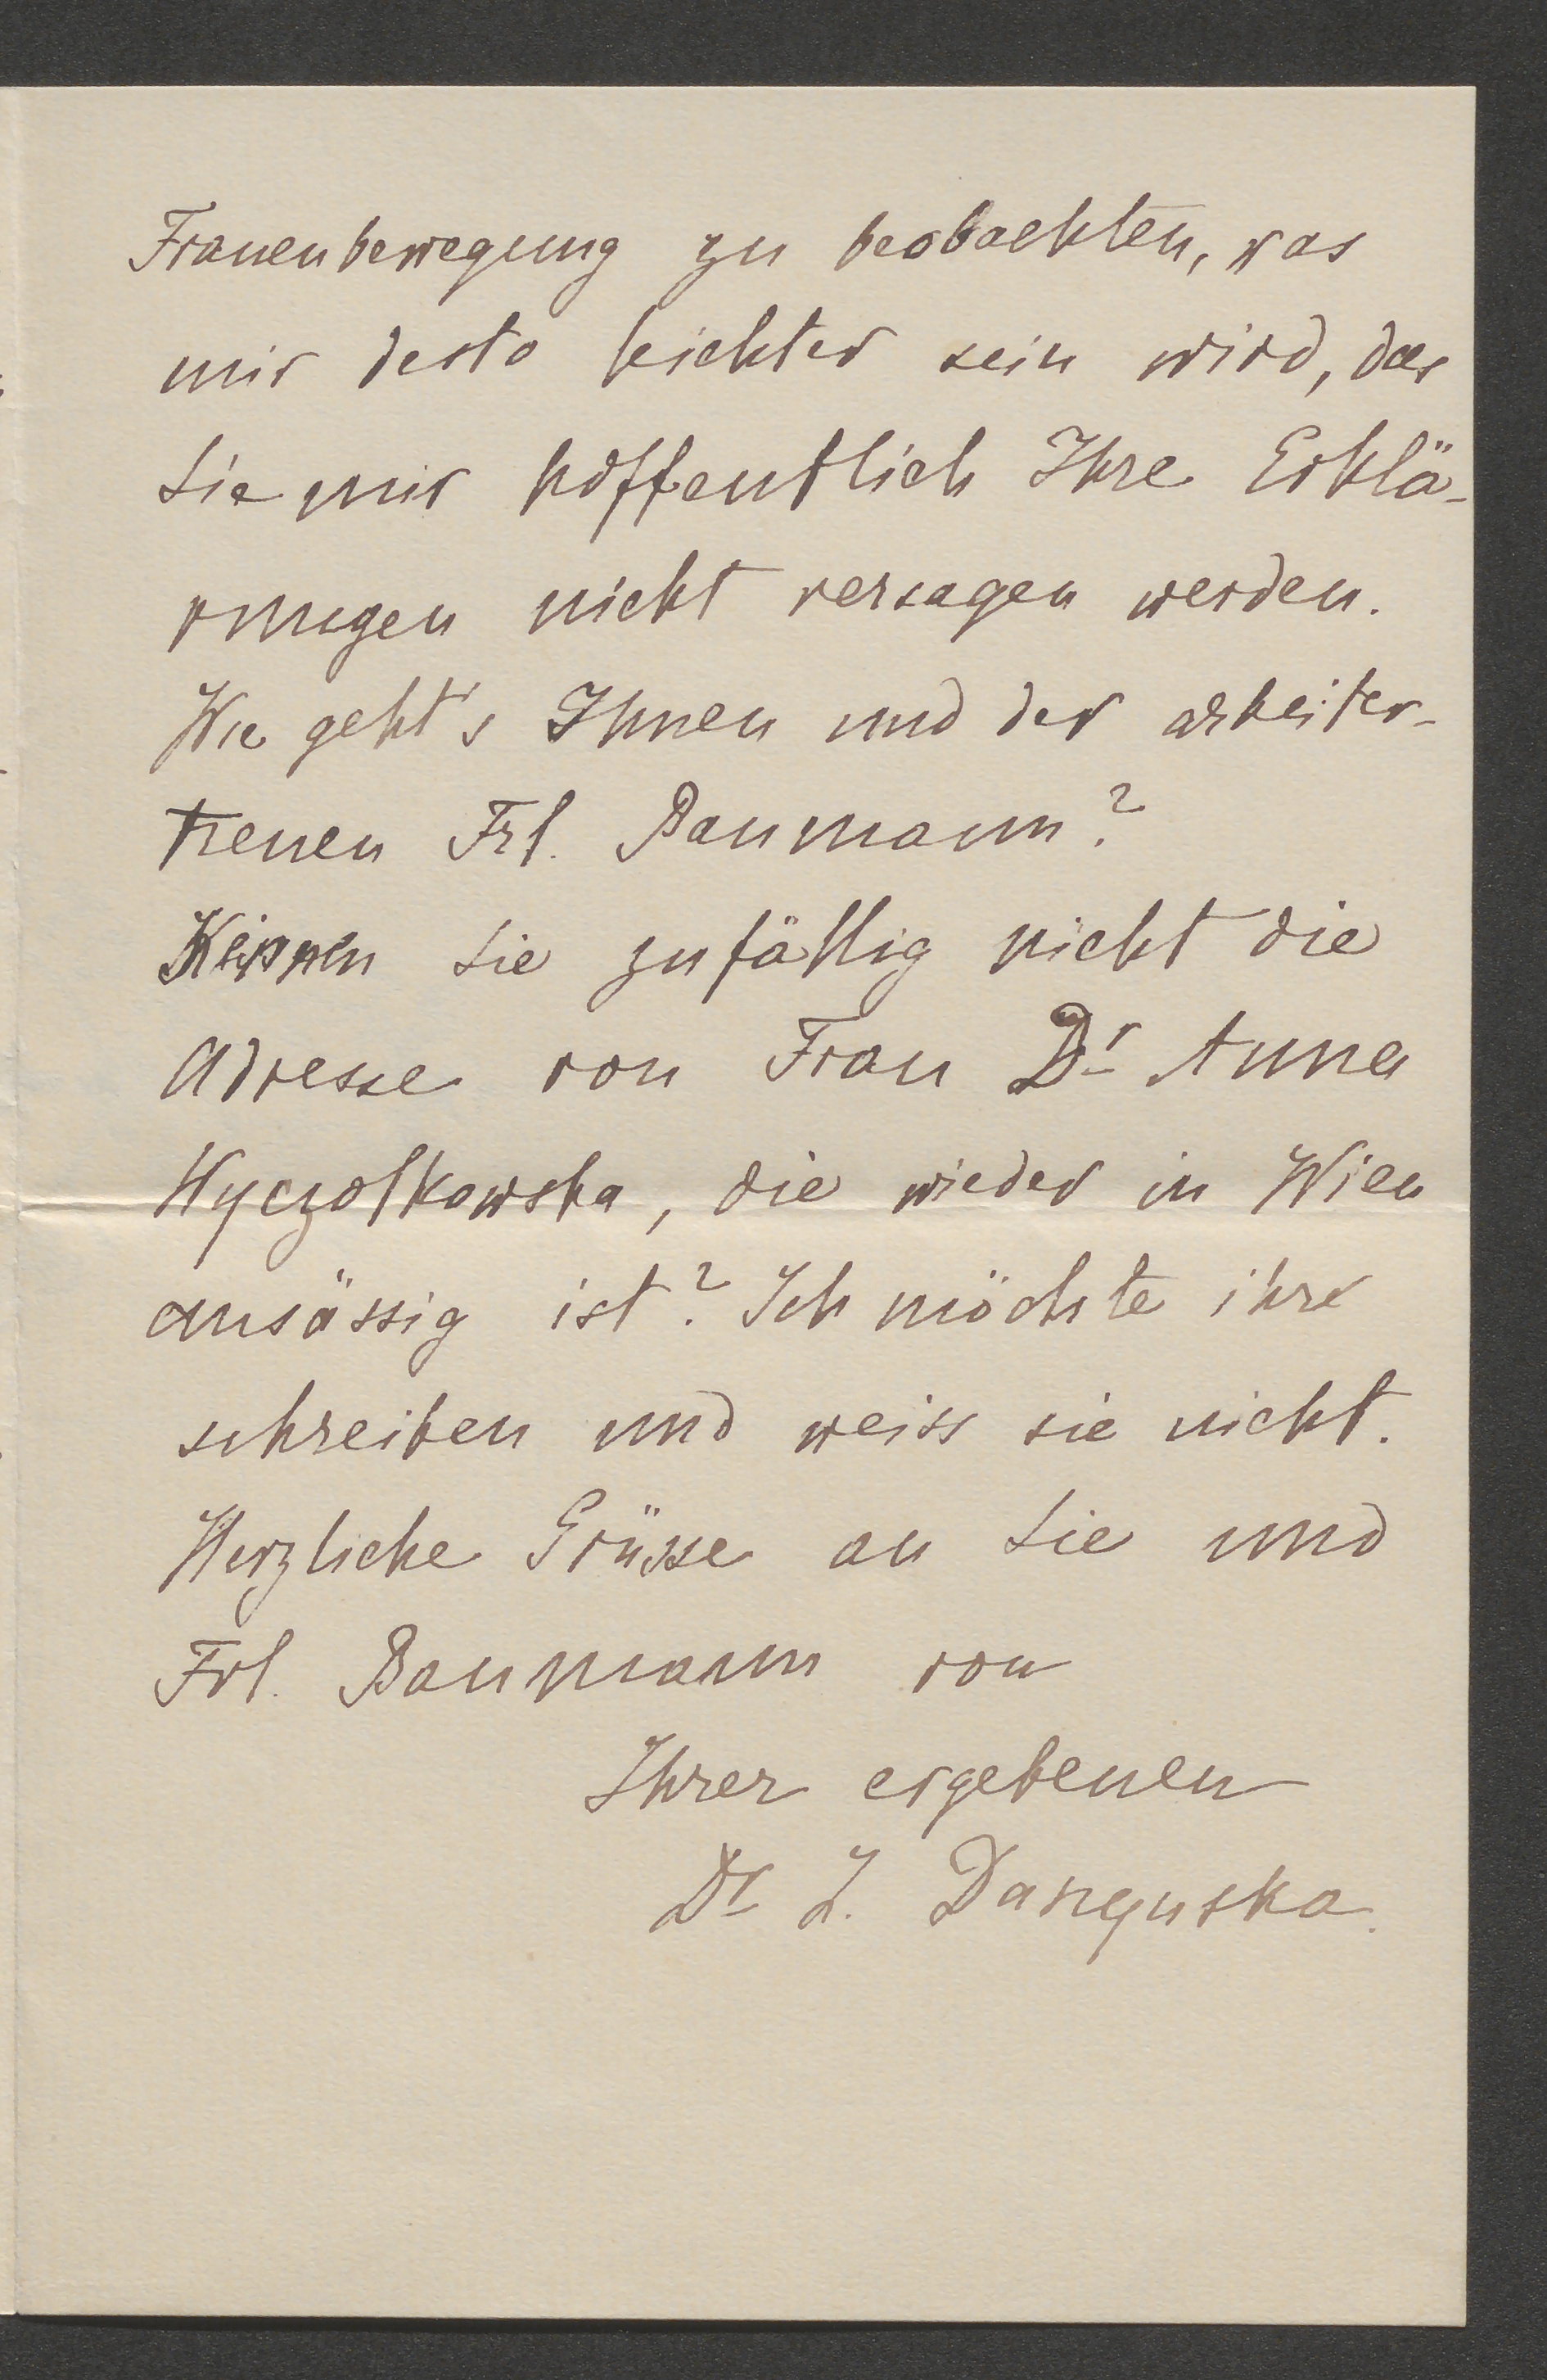 Frauenbewegung zu beobachten, was
mir desto leichter sein wird, das
Sie mir hoffentlich Ihre Erklä-
rungen nicht versagen werden.
Wie geht's Ihnen und der arbeiter-
treuen Frl. Baumann?
Kennen Sie zufällig nicht die
Adresse von Frau Dr Anna
Wyczolkowska, die wieder in Wien
ansässig ist? Ich möchte ihre
schreiben und weiss sie nicht.
Herzliche Grüsse an Sie und
Frl. Baumann von
Ihrer ergebenen
Dr Z. Daszyńska.